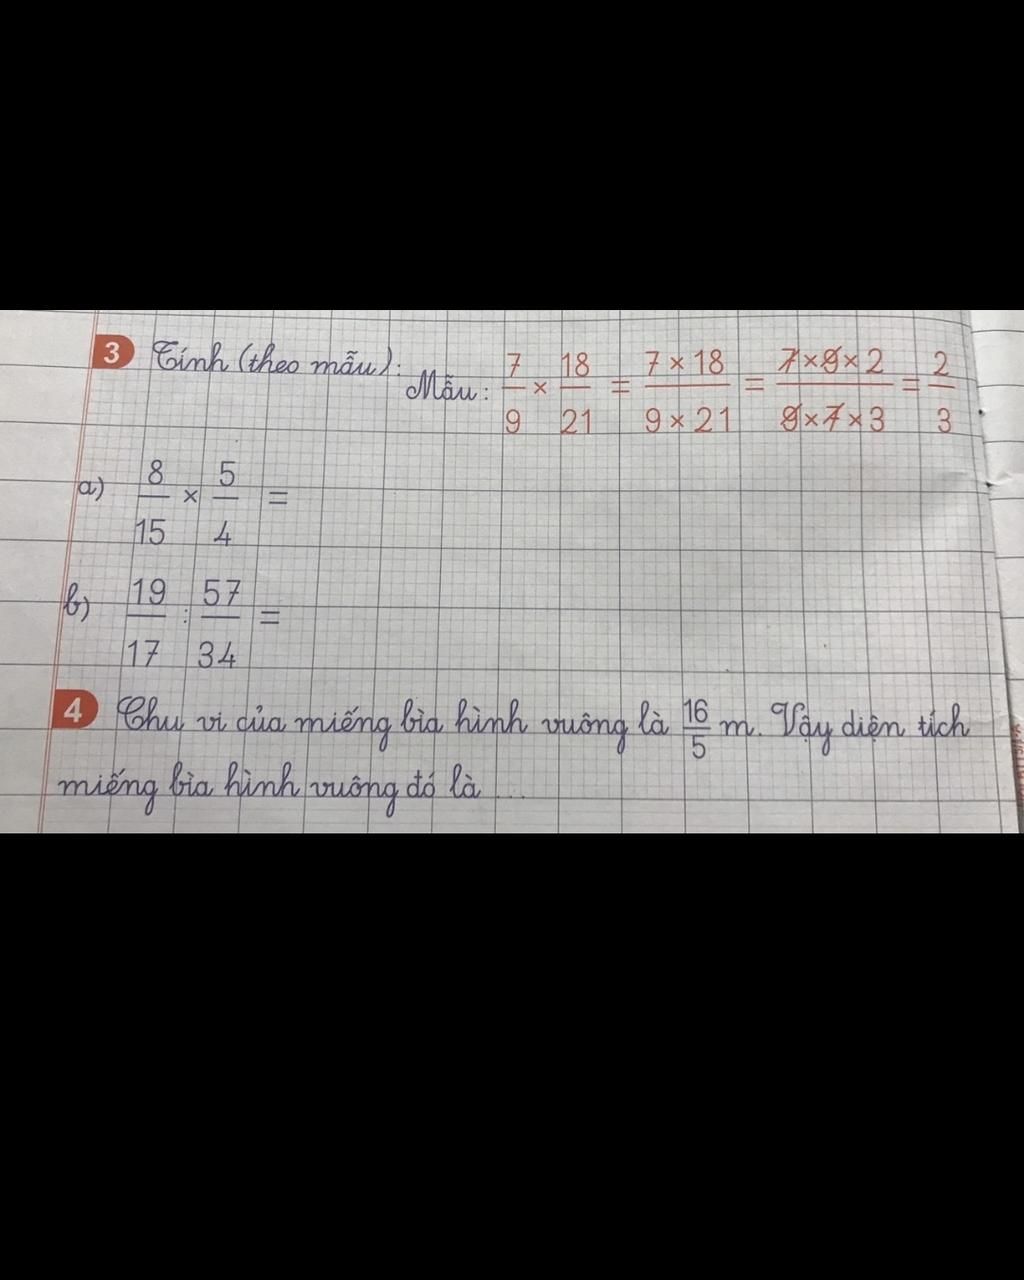 3 Tính (theo mẫu):
Mẫu: 7/9 × 18/21 = 7 × 18/9 × 21 = 7 × 9 × 2/9 × 7 × 3 = 2/3
a) 8/15 × 5/4 =
b) 19/17 : 57/34 =
4 Chu vi của miếng bìa hình vuông là 16/5 m. Vậy diện tích
miếng bìa hình vuông đó là ...